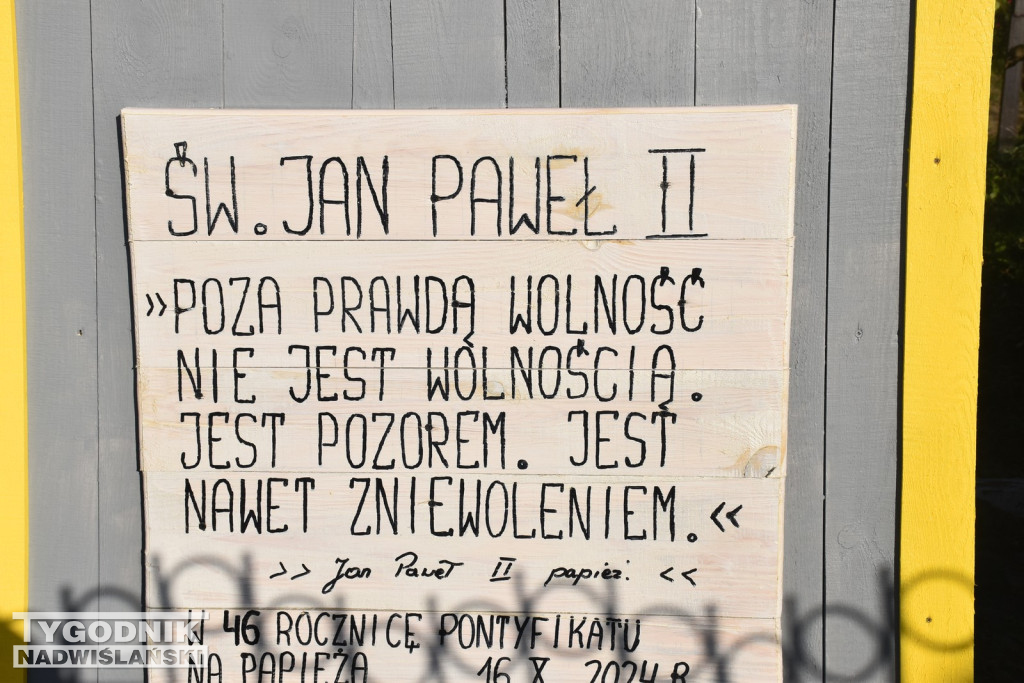 ŚW. JAN PAWEŁ II
»POZA PRAWDĄ WOLNOŚĆ
NIE JEST WOLNOŚCIĄ.
JEST POZOREM. JEST
NAWET ZNIEWOLENIEM.«
>> Jan Paweł II papież. <<
W 46 ROCZNICĘ PONTYFIKATU
NA PAPIEŻA 16 X 2024 R
TYGODNIK
NADWIŚLAŃSKI